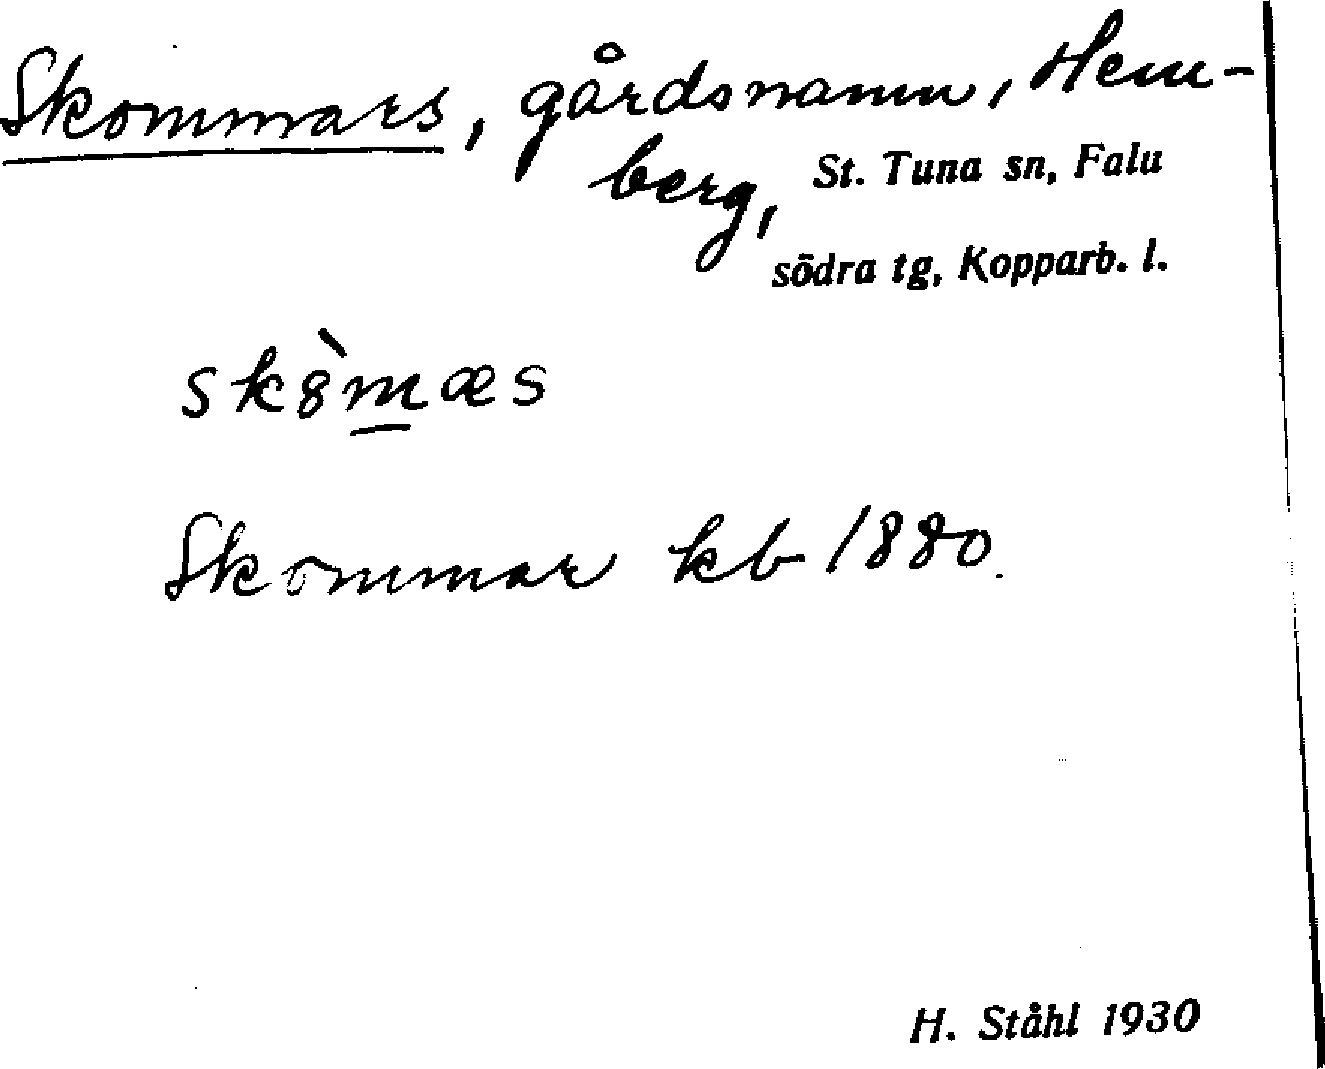 Skommars, gårdsnamn, Hem-
berg, St. Tuna sn, Falu
södra tg, Kopparb. l.
sk8̀mæs
Skommar kb 1880.
H. Ståhl 1930